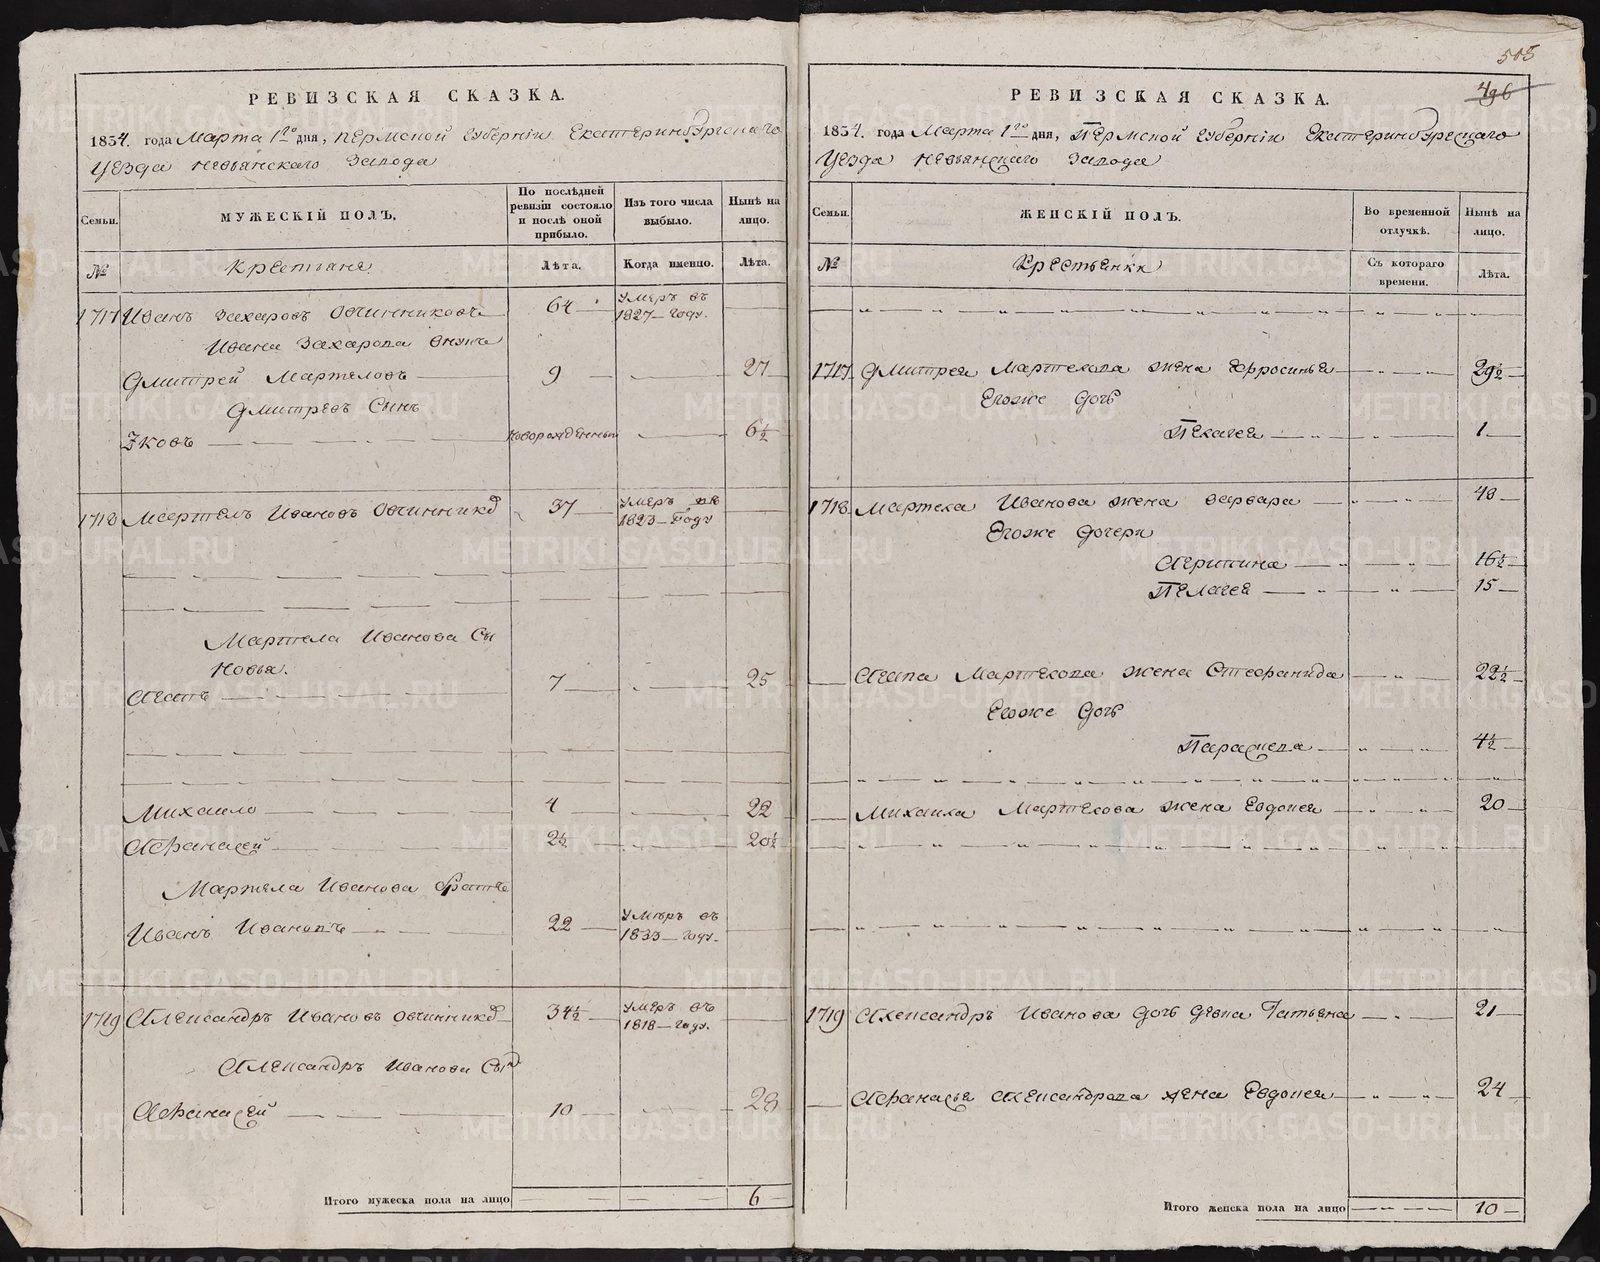 РЕВИЗСКАЯ СКАЗКА.
1834. года Марта 1го дня, Пермской Губернiи Екатеринбургскаго
Уезда Невьянскаго Завода
Семьи.
МУЖЕСКIЙ ПОЛЪ.
По послѣдней ревизiи состояло и послѣ оной прибыло.
Изъ того числа выбыло.
Нынѣ на лицо.
№
Крестьяне
Лѣта.
Когда именно.
Лѣта.
1717 Иванъ Захаровъ Овчинниковъ 64 Умеръ въ 1827 году.
Ивана Захарова внукъ
Дмитрей Мартеловъ 9 27
Дмитревъ Сынъ
новорожденный 6½
1718 Мартелъ Ивановъ Овчинников 37 Умеръ въ 1823 Году
Мартела Иванова Сы
новья.
Агапъ 7 25
Михаило 4 22
Афанасей 2½ 20½
Мартела Иванова братъ
Иванъ Ивановъ 22 Умеръ въ 1833 году.
1719 Александръ Ивановъ Овчинников 34½ Умеръ въ 1818 году.
Александръ Иванова Сын
Афанасей 10 28
Итого мужеска пола на лицо 6
508
496
РЕВИЗСКАЯ СКАЗКА.
1834. года Марта 1го дня, Пермской Губернiи Екатеринбурскаго
Уезда Невьянскаго Завода
Семьи.
ЖЕНСКIЙ ПОЛЪ.
Во временной отлучкѣ.
Нынѣ на лицо.
№
Крестьянки
Съ котораго времени.
Лѣта.
1717 Дмитрея Мартелова жена Ефросинья 29½
Егоже дочь
Пелагея 1
1718 Мартела Иванова жена Варвара 48
Егоже дочери
Агрипина 16½
Пелагея 15
Агапа Мартелова жена Стефанида 22½
Егоже дочь
Параскева 4½
Михаила Мартелова жена Евдокея 20
1719 Александръ Иванова дочь девка Татьяна 21
Афанасья Александрова жена Евдокея 24
Итого женска пола на лицо 10
METRIKI.GASO-URAL.RU